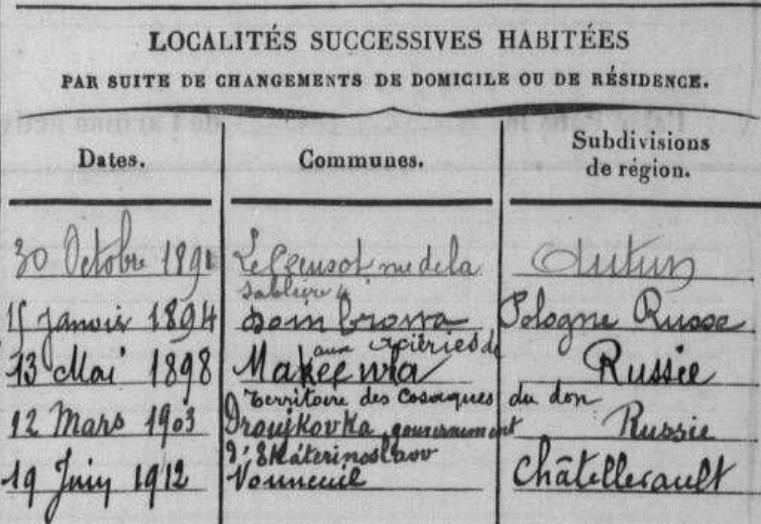 LOCALITÉS SUCCESSIVES HABITÉES
PAR SUITE DE CHANGEMENTS DE DOMICILE OU DE RÉSIDENCE.
Dates. Communes. Subdivisions de région.
30 Octobre 1891 Le Creusot rue de la Autun
sablière 4
15 janvier 1894 Dombrowa Pologne Russe
aux aciéries de
13 Mai 1898 Makeewka Russie
territoire des Cosaques du don
12 Mars 1903 Droujkovka gouvernement Russie
d'Ekaterinoslaw
19 Juin 1912 Vonneuil Châtellerault